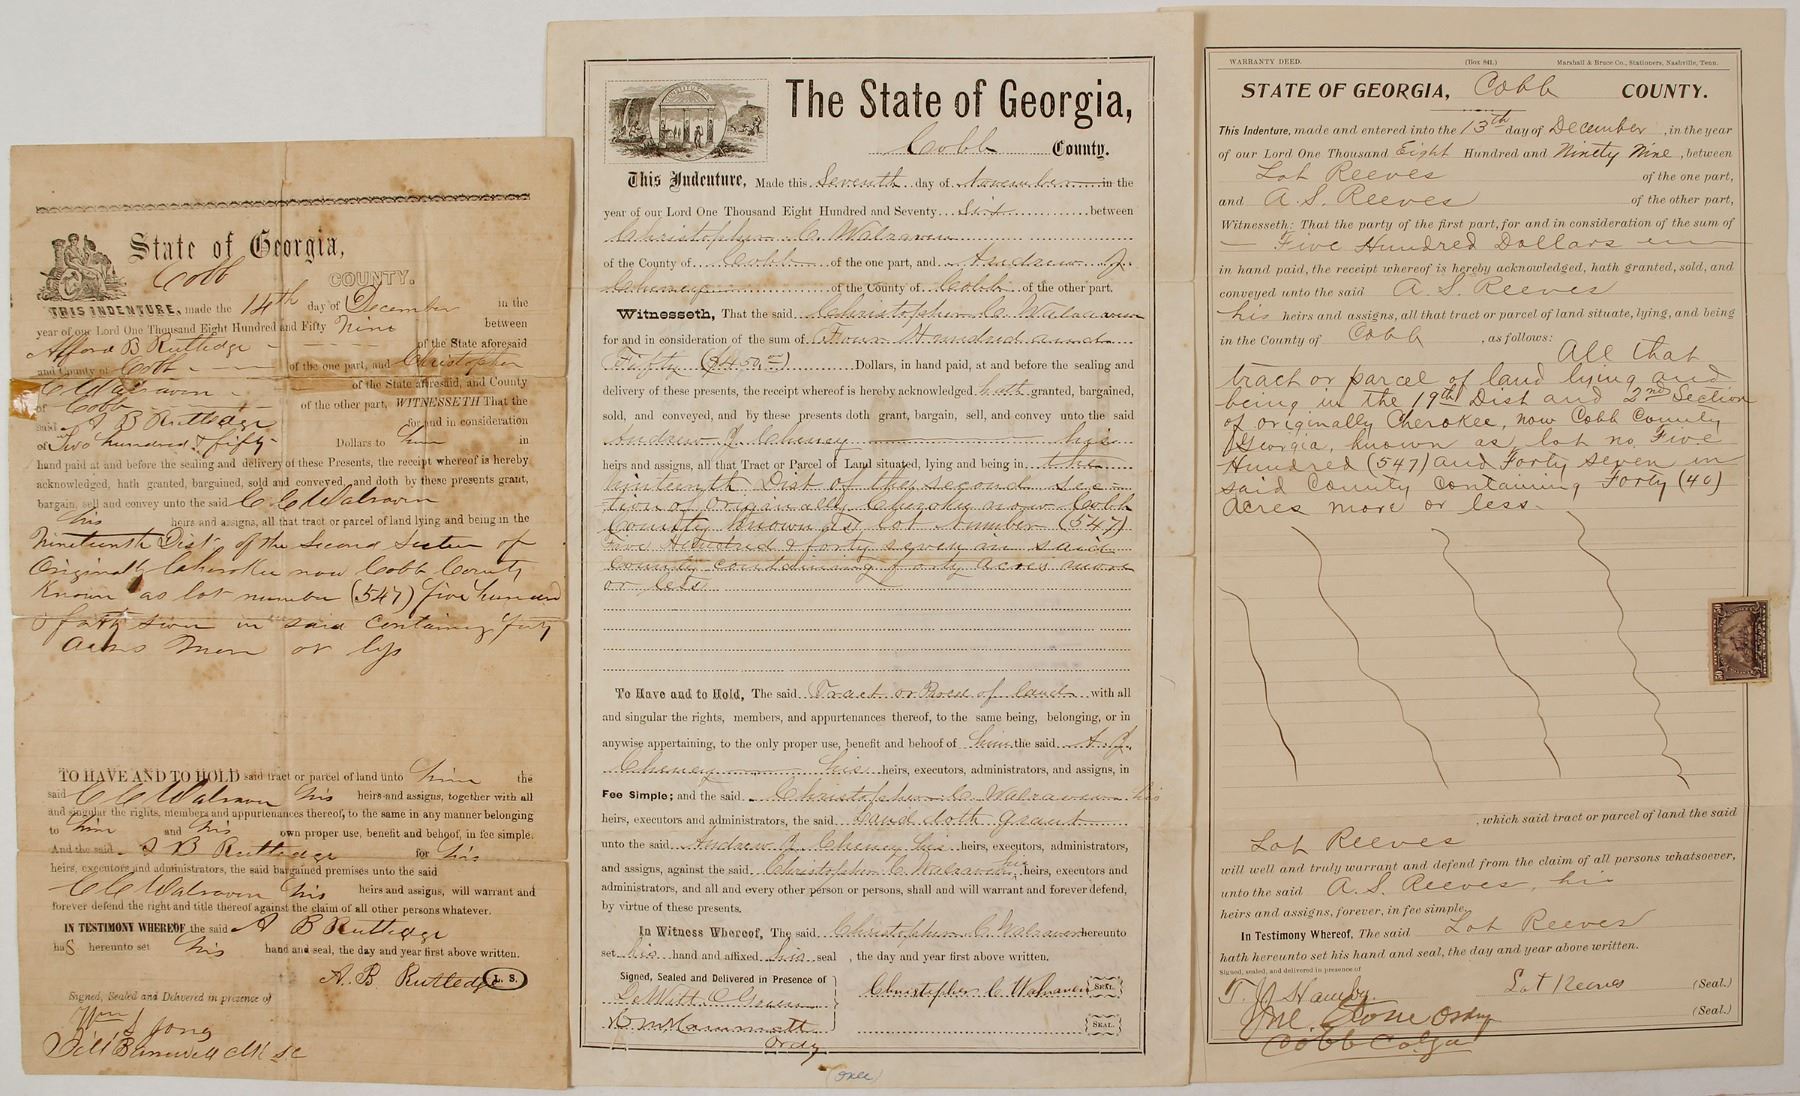 State of Georgia,
Cobb COUNTY.
THIS INDENTURE, made the 14th day of December in the
year of our Lord One Thousand Eight Hundred and Fifty Nine between
Alford B Rutledge of the State aforesaid
and County of Cobb of the one part, and Christopher
C Walraven of the State aforesaid, and County
of Cobb of the other part, WITNESSETH That the
said A B Rutledge for and in consideration
of Two hundred & fifty Dollars to him in
hand paid at and before the sealing and delivery of these Presents, the receipt whereof is hereby
acknowledged, hath granted, bargained, sold and conveyed, and doth by these presents grant,
bargain, sell and convey unto the said C C Walraven
his heirs and assigns, all that tract or parcel of land lying and being in the
Nineteenth Dist of the Second Section of
Originally Cherokee now Cobb County
Known as lot number (547) five hundred
& forty seven in said containing forty
acres more or less
TO HAVE AND TO HOLD said tract or parcel of land unto him the
said C C Walraven his heirs and assigns, together with all
and singular the rights, members and appurtenances thereof, to the same in any manner belonging
to him and his own proper use, benefit and behoof, in fee simple.
And the said A B Rutledge for his
heirs, executors and administrators, the said bargained premises unto the said
C C Walraven his heirs and assigns, will warrant and
forever defend the right and title thereof against the claim of all other persons whatever.
IN TESTIMONY WHEREOF the said A B Rutledge
haS hereunto set his hand and seal, the day and year first above written.
A. B. Rutledge L. S.
Signed, Sealed and Delivered in presence of
Wm J Jong
CONSTITUTION
The State of Georgia,
Cobb County.
This Indenture, Made this Seventh day of November in the
year of our Lord One Thousand Eight Hundred and Seventy Six between
Christopher C. Walraven
of the County of Cobb of the one part, and Andrew J.
Cheney of the County of Cobb of the other part.
Witnesseth, That the said Christopher C. Walraven
for and in consideration of the sum of Four Hundred and
Fifty ($450.00) Dollars, in hand paid, at and before the sealing and
delivery of these presents, the receipt whereof is hereby acknowledged hath granted, bargained,
sold, and conveyed, and by these presents doth grant, bargain, sell, and convey unto the said
Andrew J Cheney his
heirs and assigns, all that Tract or Parcel of Land situated, lying and being in the
ninteenth Dist of the second sec-
tion of Originally Cherokee now Cobb
County Known as lot Number (547)
Five Hundred & forty seven in said
County containing forty acres more
or less
To Have and to Hold, The said Tract or Parcel of land with all
and singular the rights, members, and appurtenances thereof, to the same being, belonging, or in
anywise appertaining, to the only proper use, benefit and behoof of him the said A J.
Cheney his heirs, executors, administrators, and assigns, in
Fee Simple; and the said Christopher C. Walraven his
heirs, executors and administrators, the said land doth grant
unto the said Andrew J Cheney his heirs, executors, administrators,
and assigns, against the said Christopher C Walraven his heirs, executors and
administrators, and all and every other person or persons, shall and will warrant and forever defend,
by virtue of these presents.
In Witness Whereof, The said Christopher C. Walraven hereunto
set his hand and affixed his seal , the day and year first above written.
Signed, Sealed and Delivered in Presence of
Christopher C Walraven SEAL.
SEAL.
Ordy
WARRANTY DEED. (Box 841.) Marshall & Bruce Co., Stationers, Nashville, Tenn.
STATE OF GEORGIA, Cobb COUNTY.
This Indenture, made and entered into the 13th day of December , in the year
of our Lord One Thousand Eight Hundred and Ninety Nine , between
Lot Reeves of the one part,
and A. S. Reeves of the other part,
Witnesseth: That the party of the first part, for and in consideration of the sum of
Five Hundred Dollars
in hand paid, the receipt whereof is hereby acknowledged, hath granted, sold, and
conveyed unto the said A. S. Reeves
his heirs and assigns, all that tract or parcel of land situate, lying, and being
in the County of Cobb , as follows: All that
tract or parcel of land lying and
being in the 19th Dist and 2nd Section
of originally Cherokee, now Cobb County
Georgia, known as lot no, Five
Hundred (547) and Forty seven in
said County Containing Forty (40)
Acres more or less.
50 50
, which said tract or parcel of land the said
Lot Reeves
will well and truly warrant and defend from the claim of all persons whatsoever,
unto the said A. S. Reeves, his
heirs and assigns, forever, in fee simple.
In Testimony Whereof, The said Lot Reeves
hath hereunto set his hand and seal, the day and year above written.
Signed, sealed, and delivered in presence of
Lot Reeves (Seal.)
T. J. Hamby.
Jno. Stone Ordy (Seal.)
Cobb Co. Ga